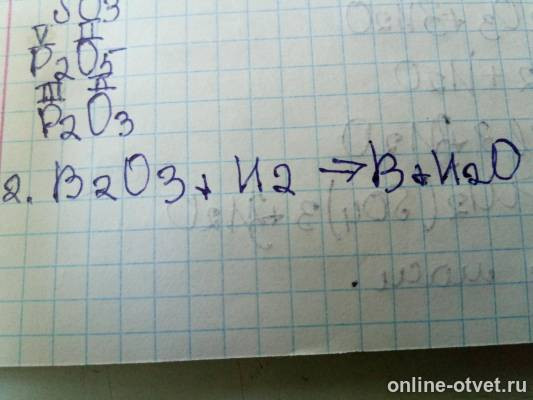 SO3
V II
P2O5
III II
P2O3
2. B2O3 + H2 → B + H2O
online-otvet.ru